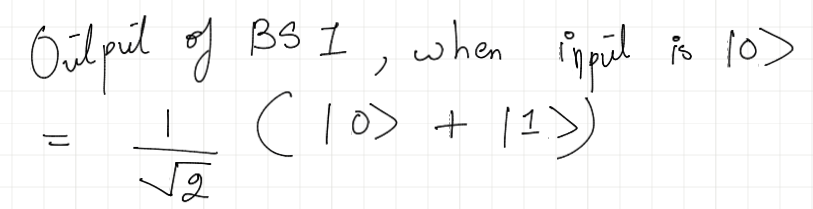 Output of BS I, when input is |0>
= 1/√2 (|0> + |1>)